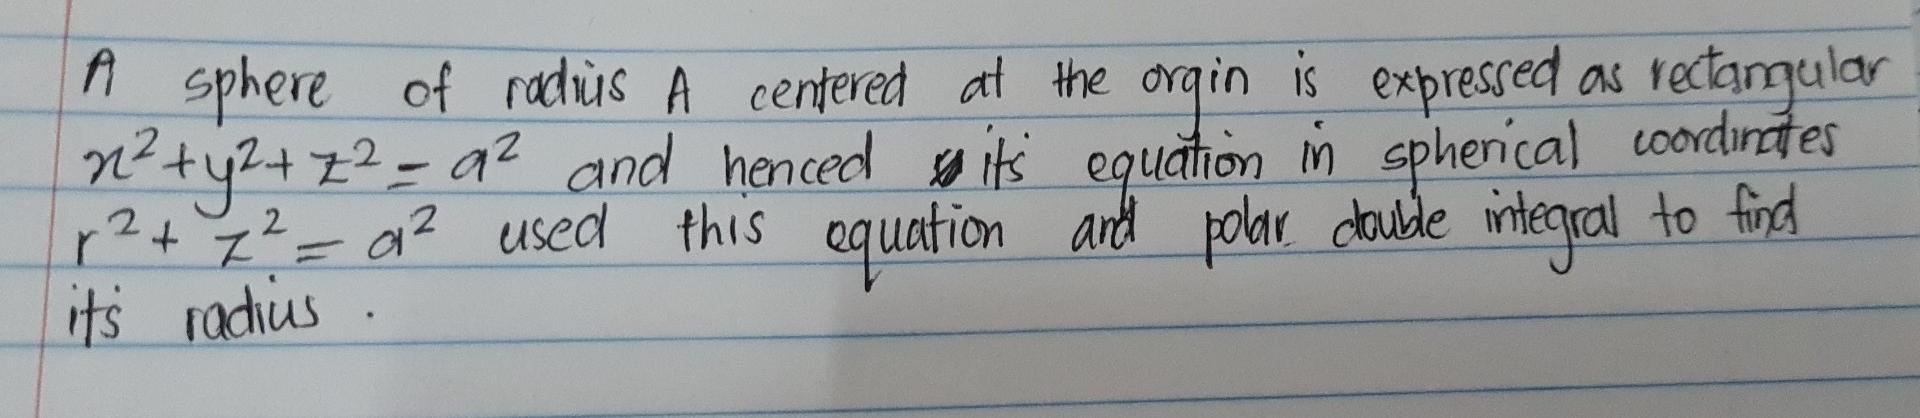 A sphere of radius A centered at the orgin is expressed as rectangular
x² + y² + z² = a² and henced its equation in spherical coordinates
r² + z² = a² used this equation and polar double integral to find
its radius.